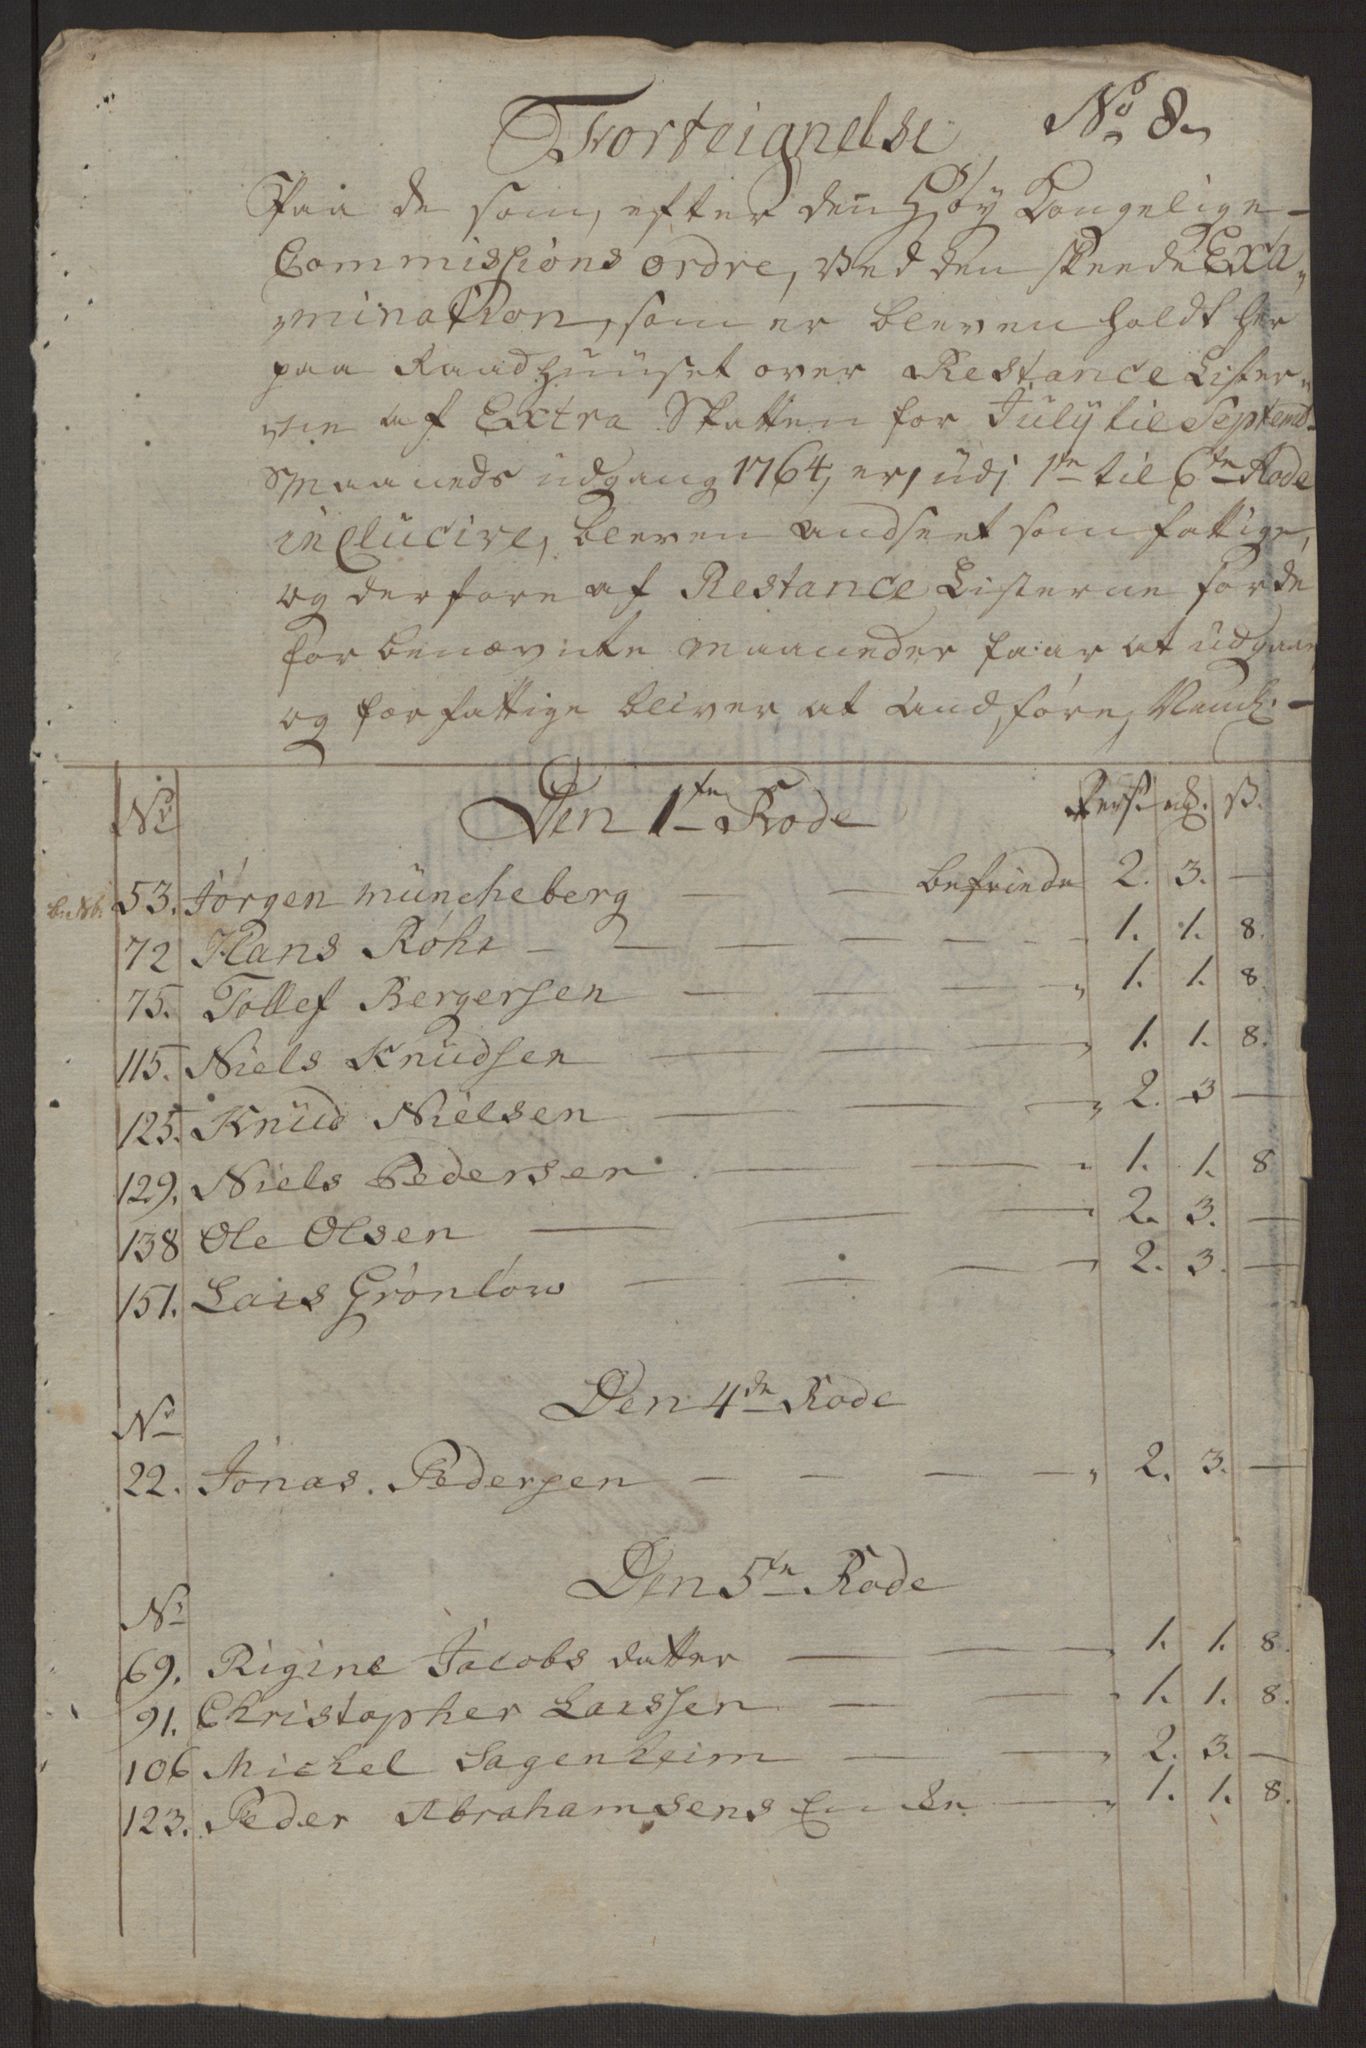 No 8.
Forteignelse
Paa de som, efter den Høy Kongelige
Commissions ordre, ved den skeede Exa„
„mination, som er bleven holdt her
paa Raadhuuset over Restance Lister„
„ne af Extra Skatten for July til Septemb.
Maaneds udgang 1764, er, udj 1te til 6te Rode
inclucive, bleven andseet som fattige,
og derfore af Restance Listerne for de
for benævnte maaneder faar at udgaae,
og for fattige bliver at andføre, Nemlig
Nr Den 1te Rode Pers. rd. ß.
53. Jørgen müncheberg — befriede 2. 3. —
72 Hans Röhr — 1. 1. 8.
75. Tollef Bergersen — 1. 1. 8.
115. Niels Knüdsen — 1. 1. 8.
125. Knüd Nielsen — 2. 3 —
129. Niels Pedersen — 1. 1. 8
138 Ole Olsen — 2. 3. —
151. Lars Grönlow — 2. 3. —
Den 4de Rode
Nr
22. Jonas. Pedersen — 2. 3. —
Den 5te Rode
Nr
69. Rigine Jacobs datter — 1. 1. 8.
91. Christopher Larssen — 1. 1. 8.
106 Michel Sagenheim — 2. 3. —
123. Peder Abrahamsens Encke — 1. 1. 8.